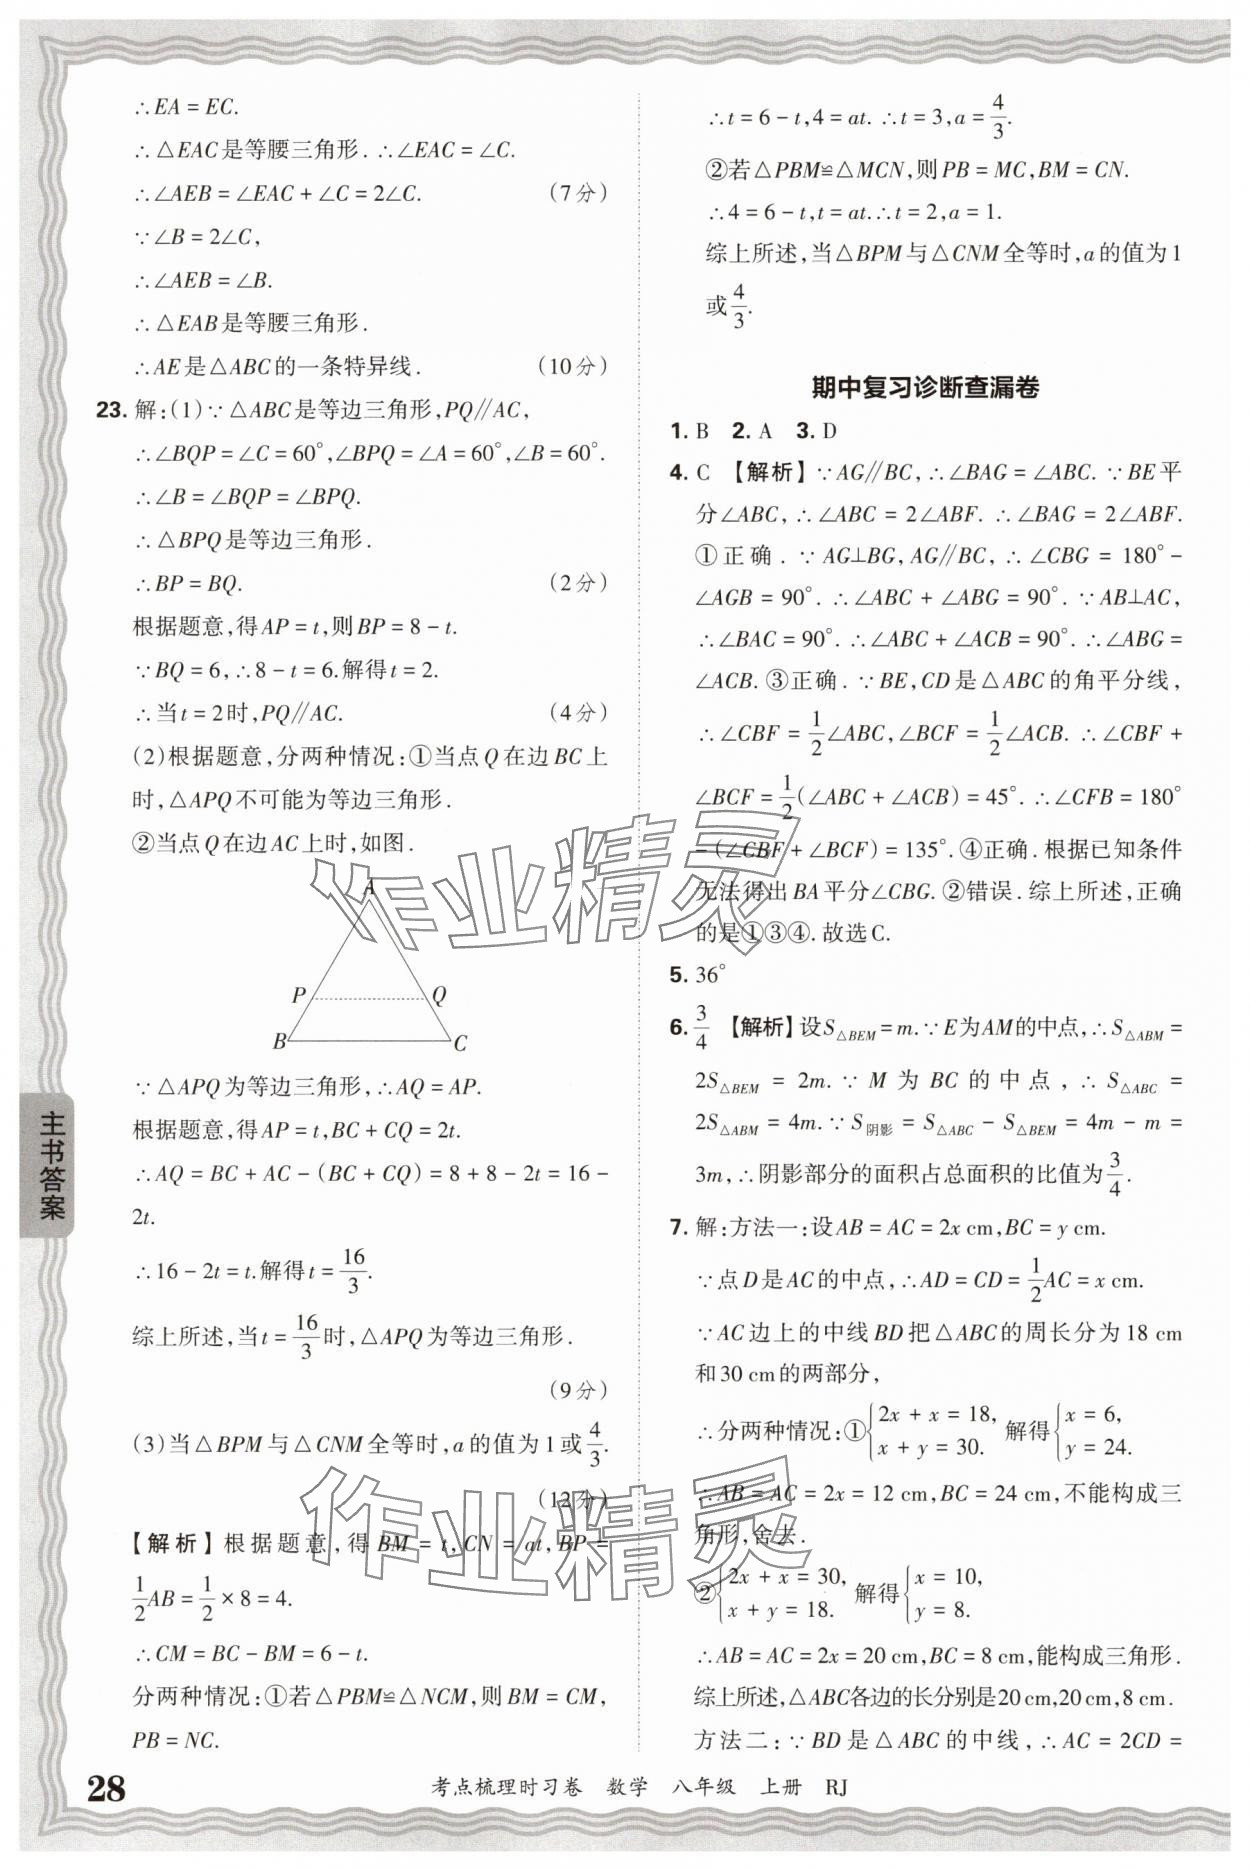 ∴EA = EC.
∴△EAC是等腰三角形. ∴∠EAC = ∠C.
∴∠AEB = ∠EAC + ∠C = 2∠C. (7分)
∵∠B = 2∠C,
∴∠AEB = ∠B.
∴△EAB是等腰三角形.
∴AE是△ABC的一条特异线. (10分)
23. 解:(1)∵△ABC是等边三角形,PQ∥AC,
∴∠BQP = ∠C = 60°,∠BPQ = ∠A = 60°,∠B = 60°.
∴∠B = ∠BQP = ∠BPQ.
∴△BPQ是等边三角形.
∴BP = BQ. (2分)
根据题意,得AP = t,则BP = 8 - t.
∵BQ = 6,∴8 - t = 6.解得t = 2.
∴当t = 2时,PQ∥AC. (4分)
(2)根据题意,分两种情况:①当点Q在边BC上
时,△APQ不可能为等边三角形.
②当点Q在边AC上时,如图.
A
P Q
B C
∵△APQ为等边三角形,∴AQ = AP.
根据题意,得AP = t,BC + CQ = 2t.
∴AQ = BC + AC - (BC + CQ) = 8 + 8 - 2t = 16 -
2t.
∴16 - 2t = t.解得t = 16/3.
综上所述,当t = 16/3时,△APQ为等边三角形.
(9分)
(3)当△BPM与△CNM全等时,a的值为1或4/3.
(12分)
【解析】根据题意,得BM = t,CN = at,BP =
1/2AB = 1/2 × 8 = 4.
∴CM = BC - BM = 6 - t.
分两种情况:①若△PBM≌△NCM,则BM = CM,
PB = NC.
∴t = 6 - t,4 = at. ∴t = 3,a = 4/3.
②若△PBM≌△MCN,则PB = MC,BM = CN.
∴4 = 6 - t,t = at.∴t = 2,a = 1.
综上所述,当△BPM与△CNM全等时,a的值为1
或4/3.
期中复习诊断查漏卷
1. B 2. A 3. D
4. C 【解析】∵AG∥BC,∴∠BAG = ∠ABC. ∵BE平
分∠ABC,∴∠ABC = 2∠ABF. ∴∠BAG = 2∠ABF.
①正确. ∵AG⊥BG,AG∥BC,∴∠CBG = 180° -
∠AGB = 90°. ∴∠ABC + ∠ABG = 90°. ∵AB⊥AC,
∴∠BAC = 90°. ∴∠ABC + ∠ACB = 90°. ∴∠ABG =
∠ACB. ③正确. ∵BE,CD是△ABC的角平分线,
∴∠CBF = 1/2∠ABC,∠BCF = 1/2∠ACB. ∴∠CBF +
∠BCF = 1/2(∠ABC + ∠ACB) = 45°. ∴∠CFB = 180°
- (∠CBF + ∠BCF) = 135°. ④正确. 根据已知条件
无法得出BA平分∠CBG. ②错误. 综上所述,正确
的是①③④. 故选C.
5. 36°
6. 3/4 【解析】设S△BEM = m.∵E为AM的中点,∴S△ABM =
2S△BEM = 2m. ∵M为BC的中点,∴S△ABC =
2S△ABM = 4m. ∵S阴影 = S△ABC - S△BEM = 4m - m =
3m,∴阴影部分的面积占总面积的比值为3/4.
7. 解:方法一:设AB = AC = 2x cm,BC = y cm.
∵点D是AC的中点,∴AD = CD = 1/2AC = x cm.
∵AC边上的中线BD把△ABC的周长分为18 cm
和30 cm的两部分,
∴分两种情况:①{2x + x = 18, x + y = 30. 解得{x = 6, y = 24.
∴AB = AC = 2x = 12 cm,BC = 24 cm,不能构成三
角形,舍去.
②{2x + x = 30, x + y = 18. 解得{x = 10, y = 8.
∴AB = AC = 2x = 20 cm,BC = 8 cm,能构成三角形.
综上所述,△ABC各边的长分别是20 cm,20 cm,8 cm.
方法二:∵BD是△ABC的中线,∴AC = 2CD =
主书答案
28 考点梳理时习卷 数学 八年级 上册 RJ
作业精灵
作业精灵